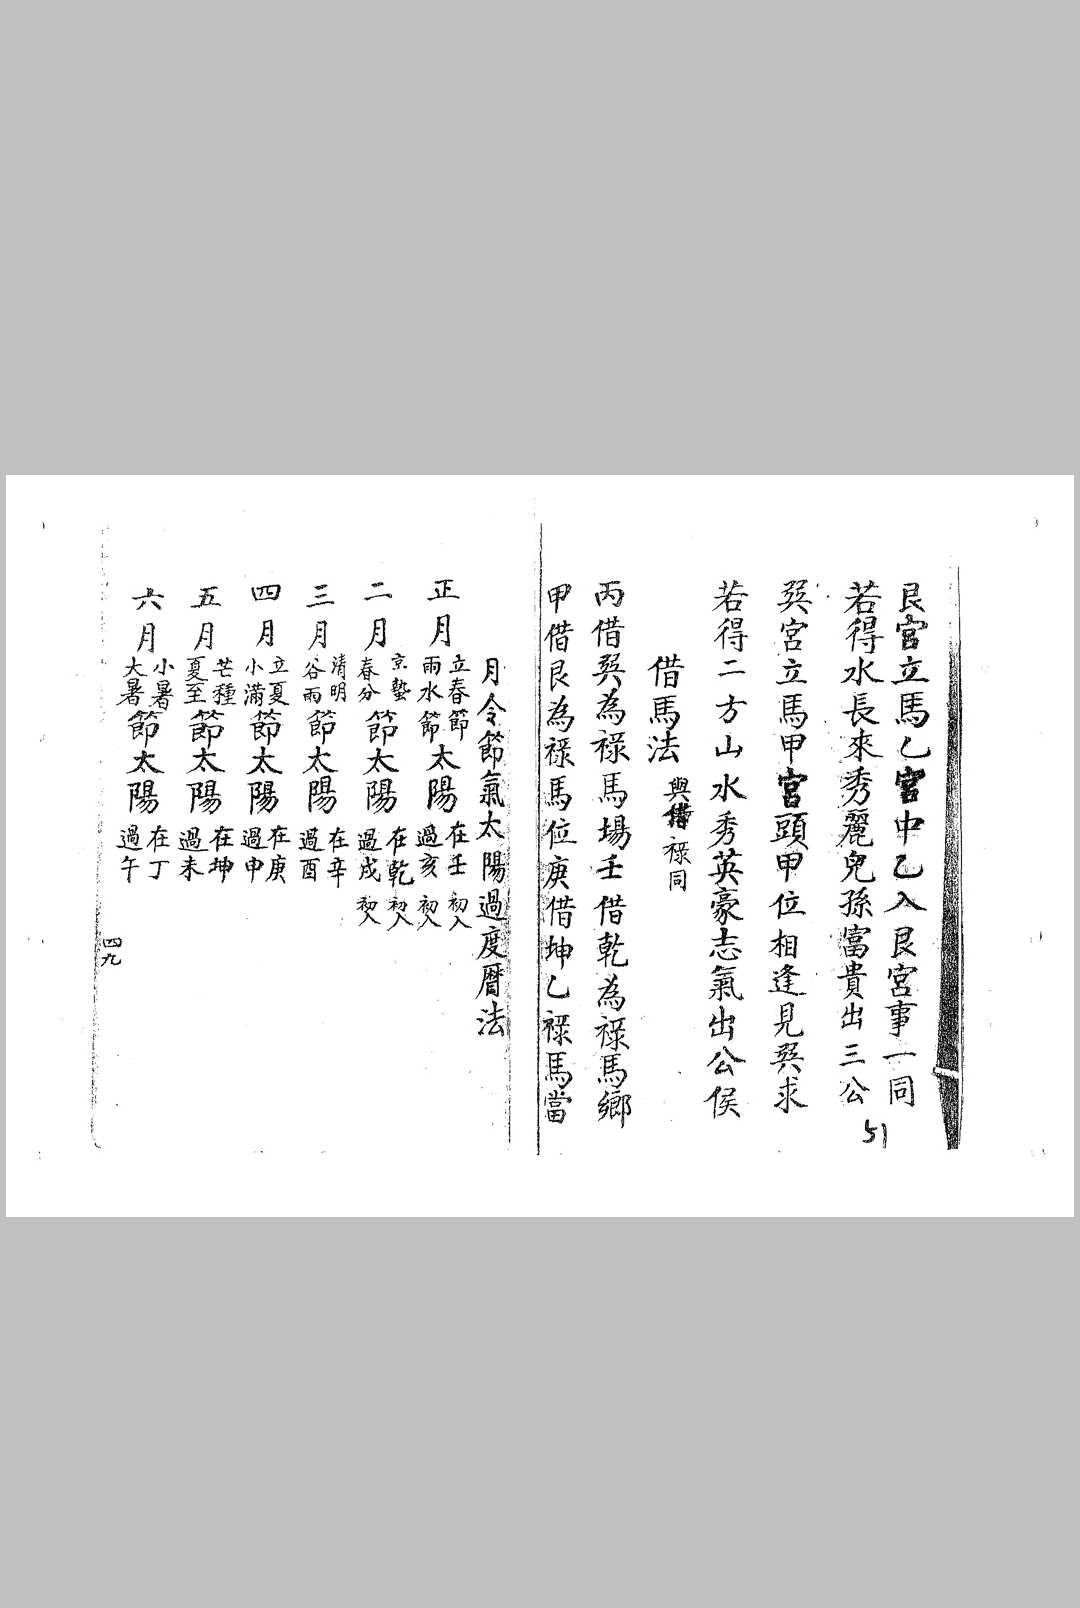 艮宮立馬乙宮中乙入艮宮事一同
若得水長來秀麗兒孫富貴出三公
巽宮立馬甲宮頭甲位相逢見巽求
若得二方山水秀英豪志氣出公侯
借馬法 與借祿同
丙借巽為祿馬場壬借乾為祿馬鄉
甲借艮為祿馬位庚借坤乙祿馬當
51
月令節氣太陽過度曆法
正月 立春節 雨水節 太陽 在壬初入 過亥初入
二月 京蟄 春分 節太陽 在乾初入 過戌初入
三月 清明 谷雨 節太陽 在辛 過酉
四月 立夏 小滿 節太陽 在庚 過申
五月 芒種 夏至 節太陽 在坤 過未
六月 小暑 大暑 節太陽 在丁 過午
四九